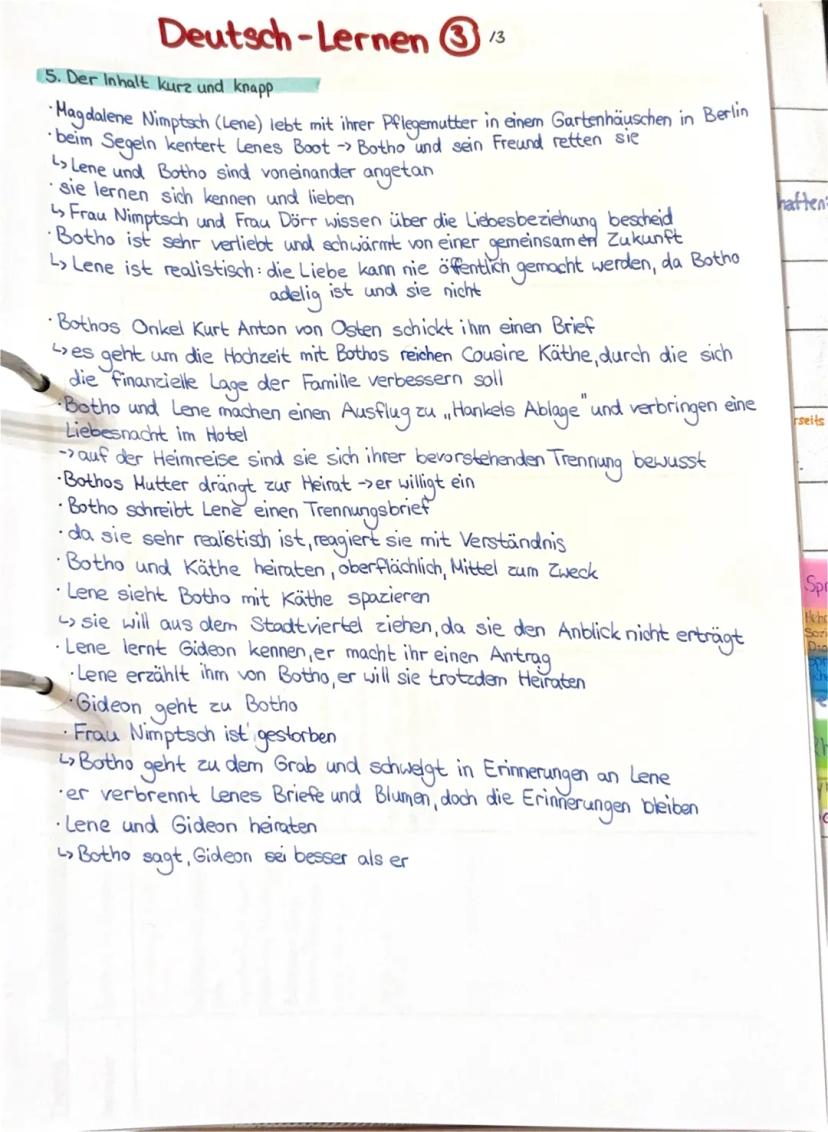 Deutsch-Lernen ③ /3
5. Der Inhalt kurz und knapp
· Magdalene Nimptsch (Lene) lebt mit ihrer Pflegemutter in einem Gartenhäuschen in Berlin
· beim Segeln kentert Lenes Boot → Botho und sein Freund retten sie
↳ Lene und Botho sind voneinander angetan
· sie lernen sich kennen und lieben
↳ Frau Nimptsch und Frau Dörr wissen über die Liebesbeziehung bescheid
· Botho ist sehr verliebt und schwärmt von einer gemeinsamen Zukunft
↳ Lene ist realistisch: die Liebe kann nie öffentlich gemacht werden, da Botho
adelig ist und sie nicht
· Bothos Onkel Kurt Anton von Osten schickt ihm einen Brief
↳ es geht um die Hochzeit mit Bothos reichen Cousine Käthe, durch die sich
die finanzielle Lage der Familie verbessern soll
· Botho und Lene machen einen Ausflug zu „Hankels Ablage" und verbringen eine
Liebesnacht im Hotel
→ auf der Heimreise sind sie sich ihrer bevorstehenden Trennung bewusst
· Bothos Mutter drängt zur Heirat → er willigt ein
· Botho schreibt Lene einen Trennungsbrief
· da sie sehr realistisch ist, reagiert sie mit Verständnis
· Botho und Käthe heiraten, oberflächlich, Mittel zum Zweck
· Lene sieht Botho mit Käthe spazieren
↳ sie will aus dem Stadtviertel ziehen, da sie den Anblick nicht erträgt
· Lene lernt Gideon kennen, er macht ihr einen Antrag
· Lene erzählt ihm von Botho, er will sie trotzdem Heiraten
· Gideon geht zu Botho
· Frau Nimptsch ist gestorben
↳ Botho geht zu dem Grab und schwelgt in Erinnerungen an Lene
· er verbrennt Lenes Briefe und Blumen, doch die Erinnerungen bleiben
· Lene und Gideon heiraten
↳ Botho sagt, Gideon sei besser als er
haften:
rseits
Spr